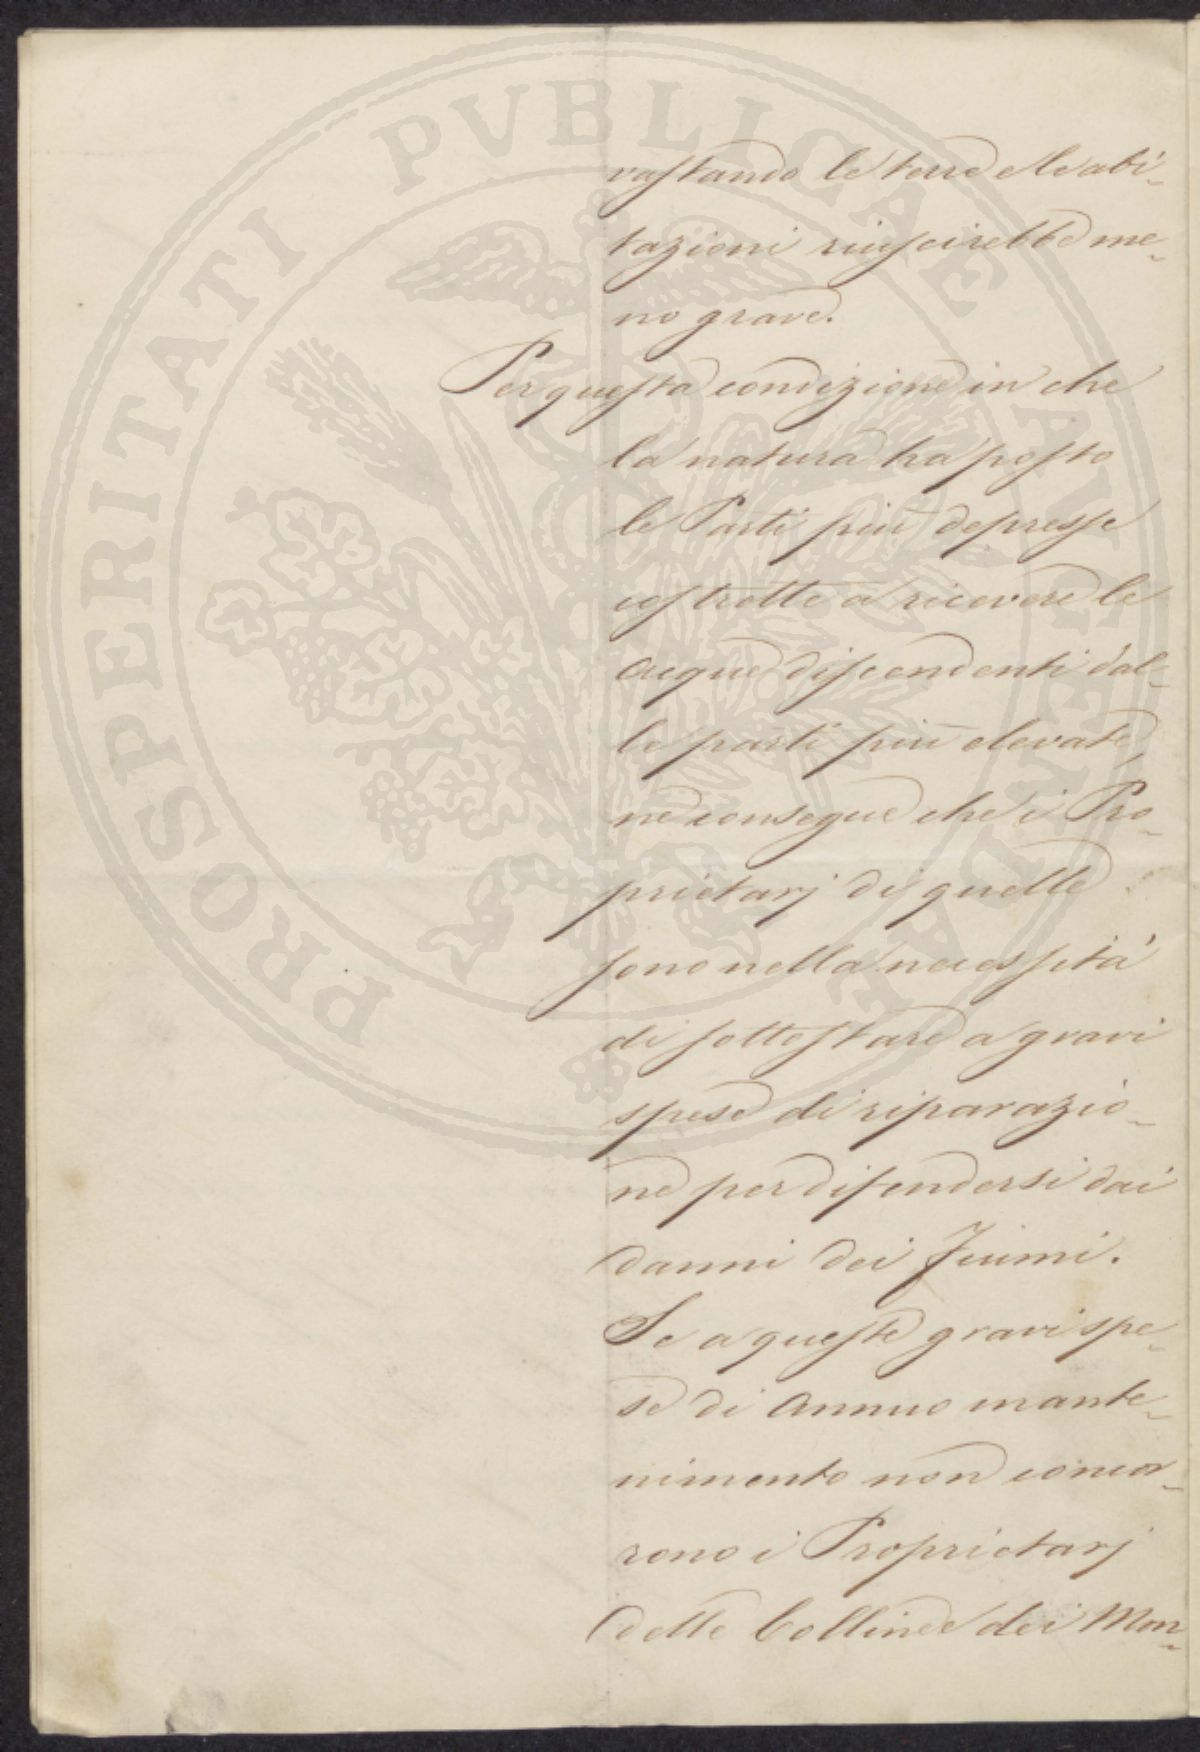 PROSPERITATI PUBLICAE AVGENDAE
vastando le terre e le abi-
tazioni riuscirebbe me-
no grave.
Per questa condizione in che
la natura ha posto
le Parti più depresse
costrette a ricevere le
acque discendenti dal-
le parti più elevate,
ne consegue che i Pro-
prietarj di quelle
sono nella necessità
di sottostare a gravi
spese di riparazio-
ne per difendersi dai
danni dei Fiumi.
Se a queste gravi spe-
se di annuo mante-
nimento non concor-
rono i Proprietarj
delle Colline e dei Mon-